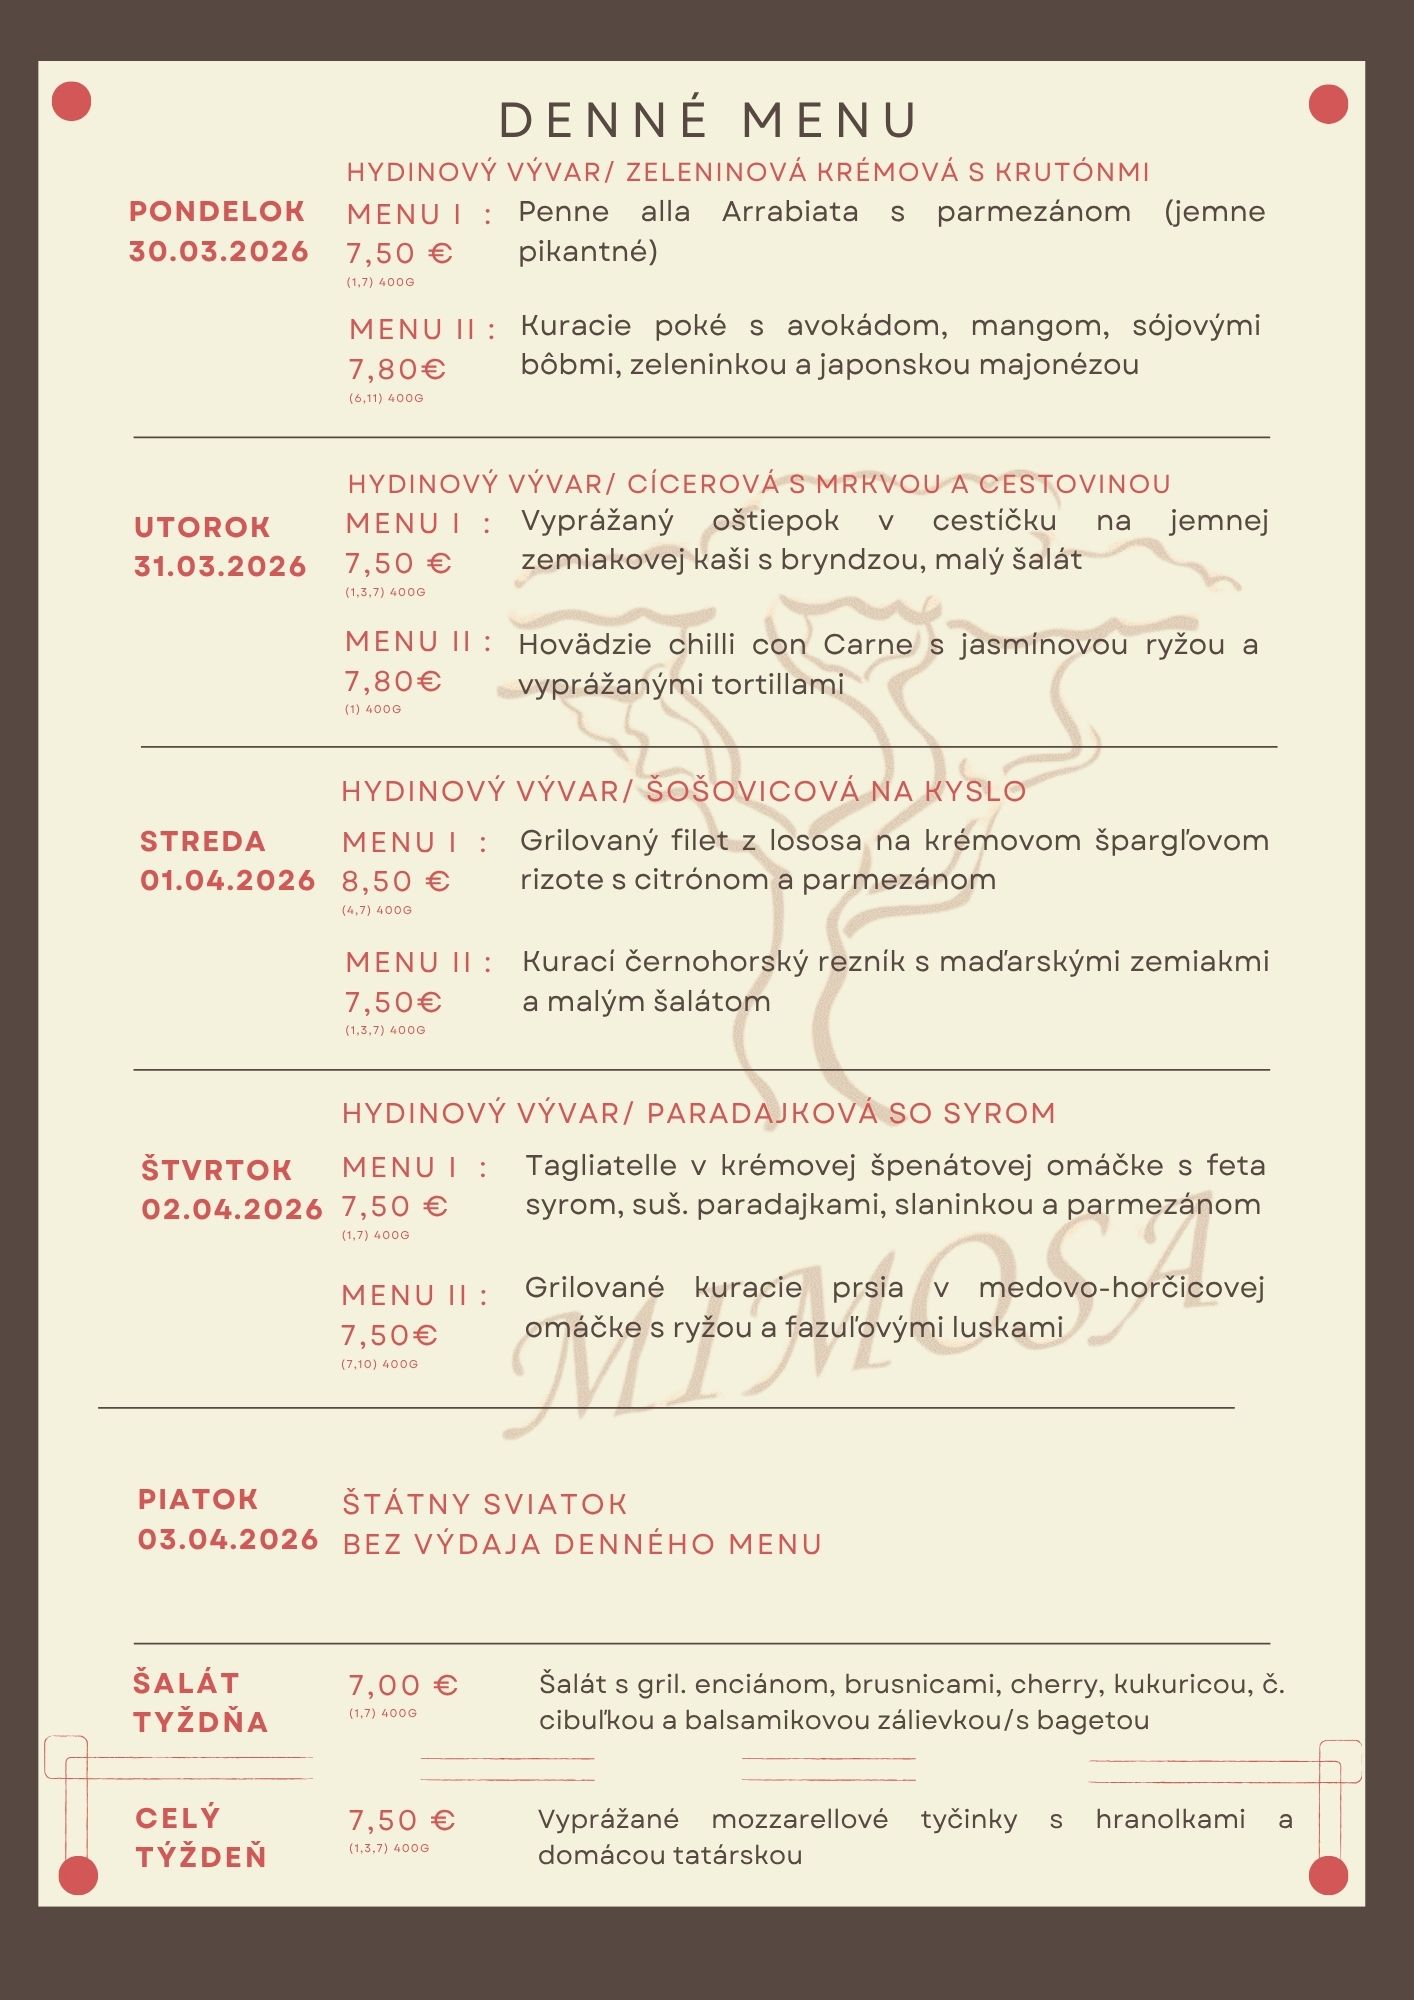 DENNÉ MENU
HYDINOVÝ VÝVAR/ ZELENINOVÁ KRÉMOVÁ S KRUTÓNMI
PONDELOK
30.03.2026
MENU I :
7,50 €
(1,7) 400G
Penne alla Arrabiata s parmezánom (jemne
pikantné)
MENU II :
7,80€
(6,11) 400G
Kuracie poké s avokádom, mangom, sójovými
bôbmi, zeleninkou a japonskou majonézou
HYDINOVÝ VÝVAR/ CÍCEROVÁ S MRKVOU A CESTOVINOU
UTOROK
31.03.2026
MENU I :
7,50 €
(1,3,7) 400G
Vyprážaný oštiepok v cestíčku na jemnej
zemiakovej kaši s bryndzou, malý šalát
MENU II :
7,80€
(1) 400G
Hovädzie chilli con Carne s jasmínovou ryžou a
vyprážanými tortillami
HYDINOVÝ VÝVAR/ ŠOŠOVICOVÁ NA KYSLO
STREDA
01.04.2026
MENU I :
8,50 €
(4,7) 400G
Grilovaný filet z lososa na krémovom špargľovom
rizote s citrónom a parmezánom
MENU II :
7,50€
(1,3,7) 400G
Kurací černohorský rezník s maďarskými zemiakmi
a malým šalátom
HYDINOVÝ VÝVAR/ PARADAJKOVÁ SO SYROM
ŠTVRTOK
02.04.2026
MENU I :
7,50 €
(1,7) 400G
Tagliatelle v krémovej špenátovej omáčke s feta
syrom, suš. paradajkami, slaninkou a parmezánom
MENU II :
7,50€
(7,10) 400G
Grilované kuracie prsia v medovo-horčicovej
omáčke s ryžou a fazuľovými luskami
MIMOSA
PIATOK
03.04.2026
ŠTÁTNY SVIATOK
BEZ VÝDAJA DENNÉHO MENU
ŠALÁT
TYŽDŇA
7,00 €
(1,7) 400G
Šalát s gril. enciánom, brusnicami, cherry, kukuricou, č.
cibuľkou a balsamikovou zálievkou/s bagetou
CELÝ
TÝŽDEŇ
7,50 €
(1,3,7) 400G
Vyprážané mozzarellové tyčinky s hranolkami a
domácou tatárskou